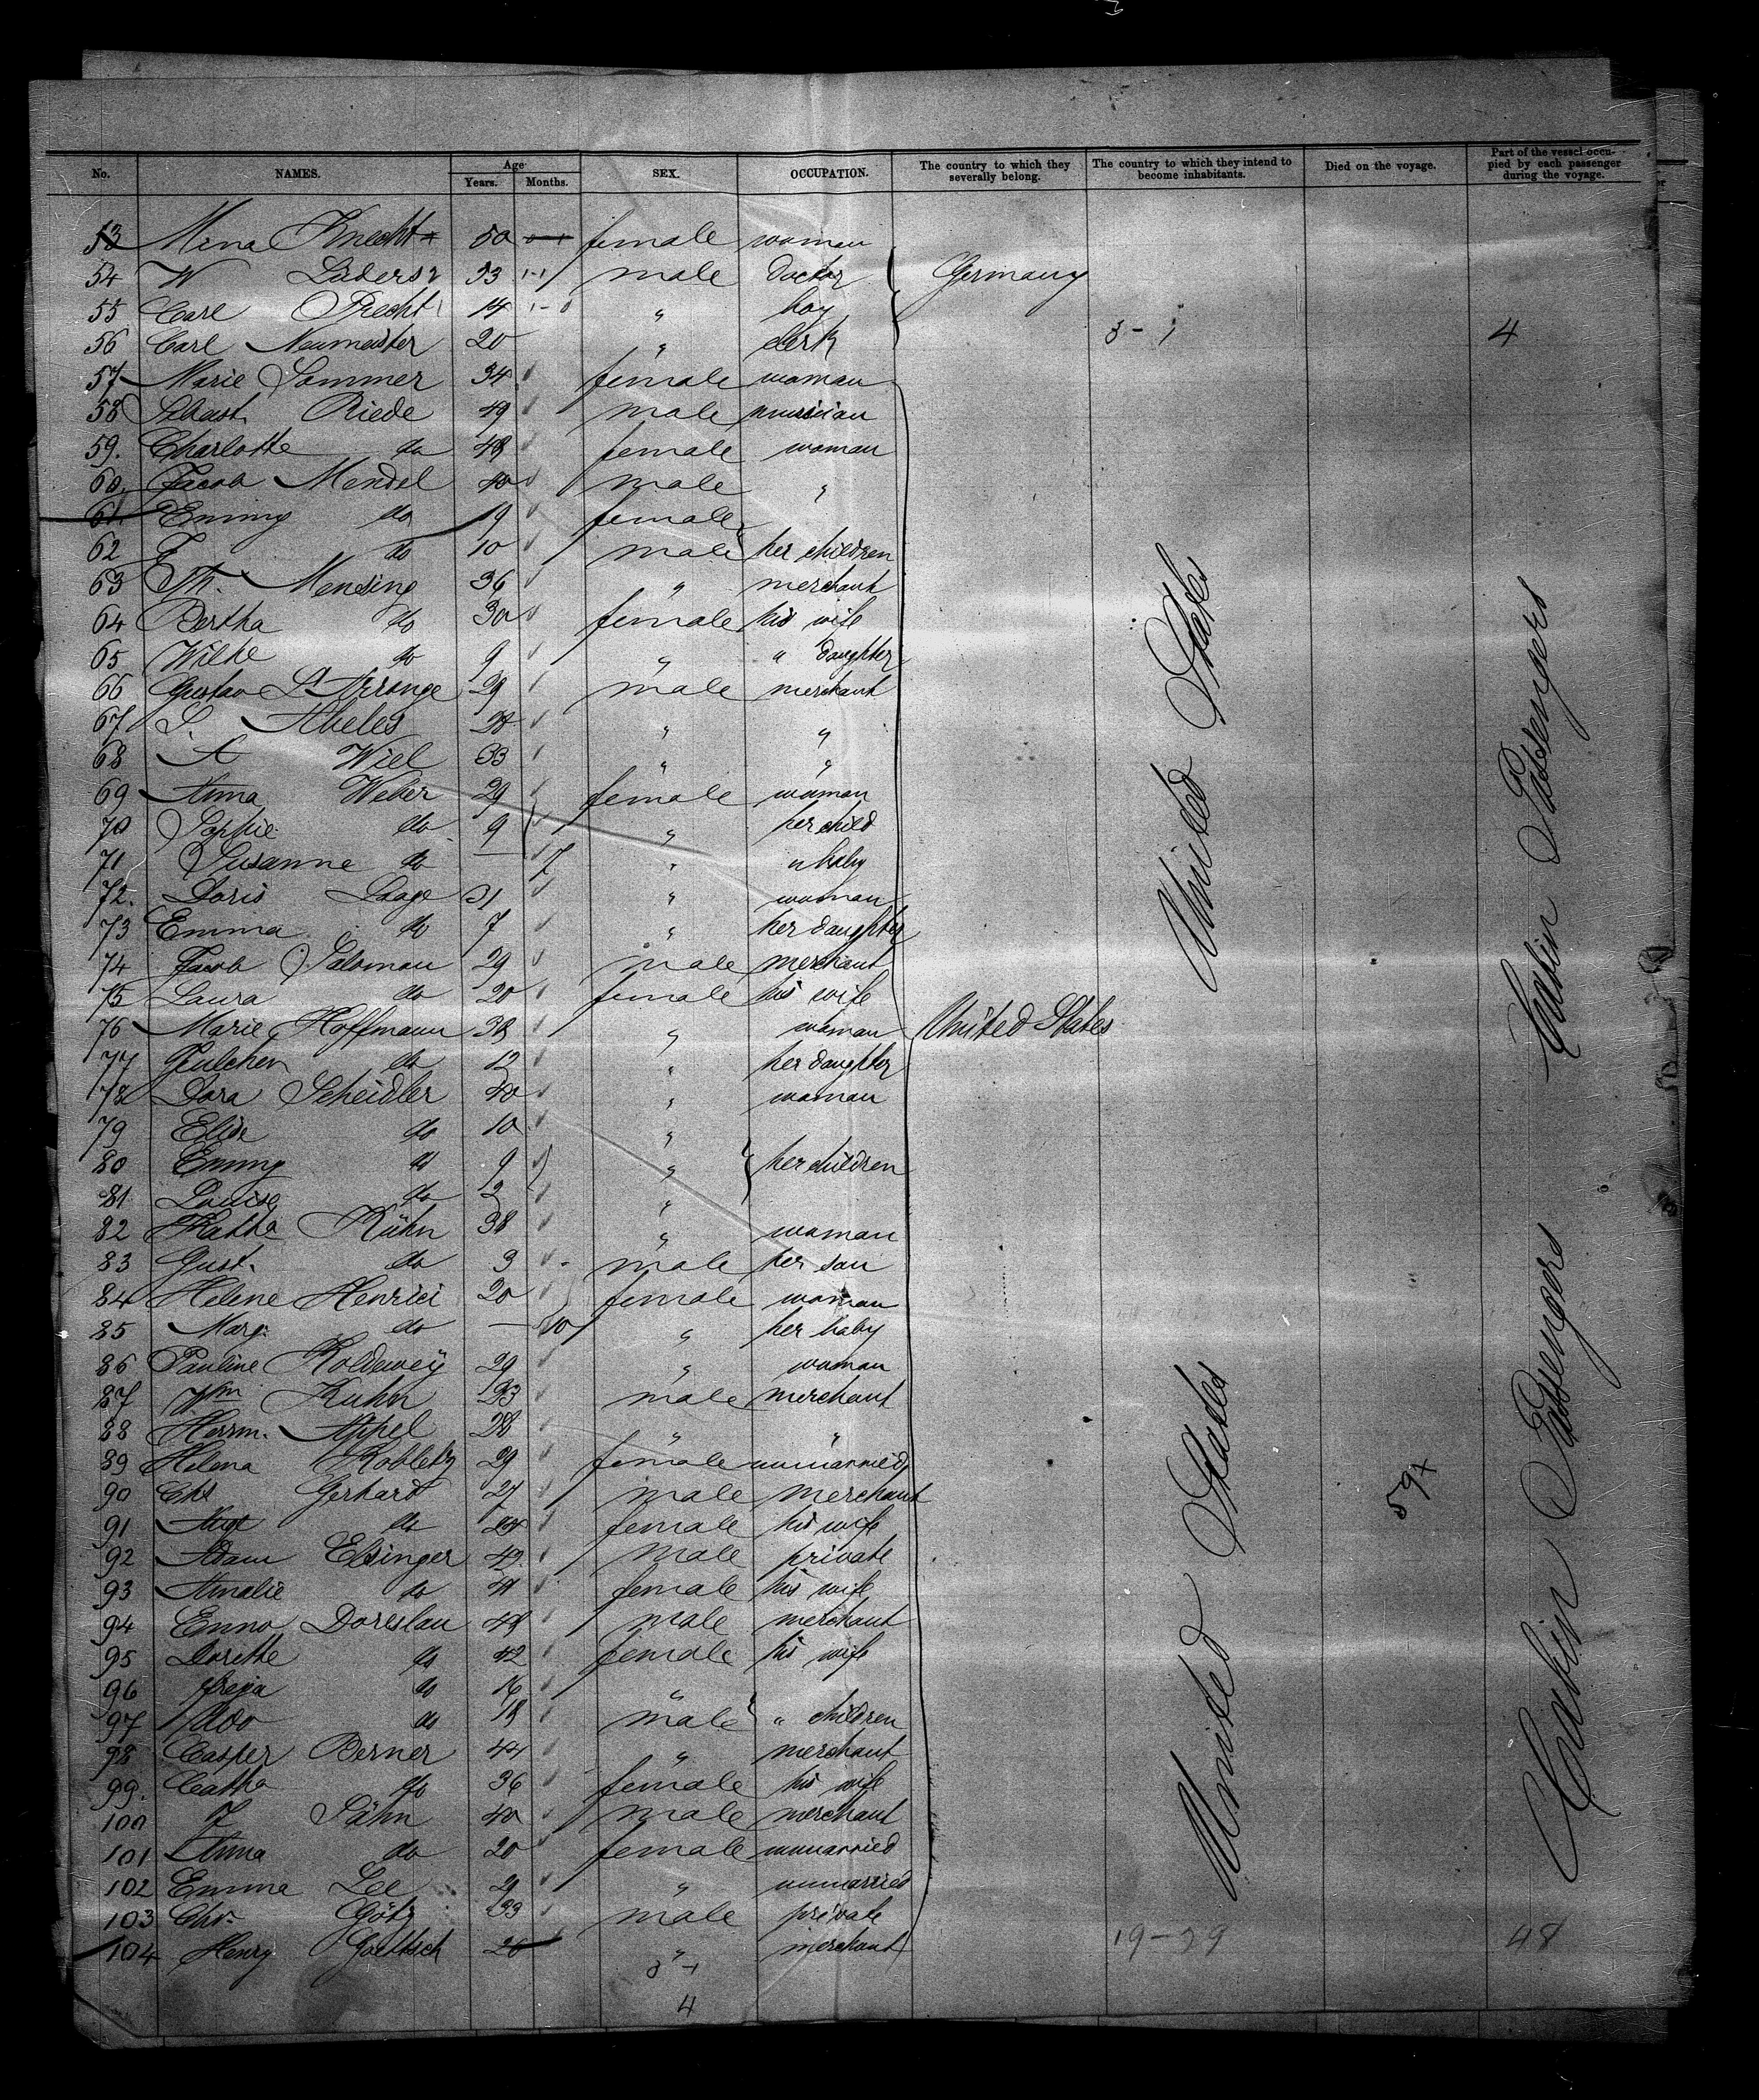 No. NAMES. Age Years. Months. SEX. OCCUPATION. The country to which they severally belong. The country to which they intend to become inhabitants. Died on the voyage. Part of the vessel occupied by each passenger during the voyage.
53 Mina Knecht 50 female woman
54 W Lüders 53 male doctor Germany
55 Carl Precht 14 " boy
56 Carl Neumeister 20 " clerk 3-1 4
57 Marie Sommer 34 female woman
58 Sebast. Riede 49 male musician
59. Charlotte do 48 female woman
60. Jacob Mendel 40 male "
61. Emmy do 19 female
62 do 10 male her children
63 Th. Mensing 36 " merchant
64 Bertha do 30 female his wife
65 do 9 " " daughter
66 Gustav L'Arronge 29 male merchant
67 S. Abeles 28 " "
68 A Wiel 33 " "
69 Anna Weber 29 female woman
70 Sophie do 9 " her child
71 Susanne do — 7 " " baby
72. Doris Laage 31 " woman
73 Emma do 7 " her daughter
74 Jacob Salomon 29 male merchant
75 Laura do 20 female his wife
76 Marie Hoffmann 38 " woman United States
77 Julchen do 12 " her daughter
78 Dora Scheidler 40 " woman
79 Elise do 10 "
80 Emmy do 9 " her children
81 Louise do 2 "
82 Kathe Kühn 38 " woman
83 Gust. do 3 male her son
84 Helene Henrici 20 female woman
85 Marg. do — 10 " her baby
86 Pauline Koldewey 29 " woman
87 Wm Kuhn 23 male merchant
88 Herrm. Appel 28 " "
89 Helena Kobletz 29 female unmarried
90 Chs Gerhard 27 male merchant
91 Aug do 24 female his wife
92 Adam Elsinger 42 male private
93 Amalie do 41 female his wife
94 Enno Doreslau 48 male merchant
95 Dorette do 42 female his wife
96 do 16 "
97 Udo do 18 male " children
98 Casper Berner 44 " merchant
99. Catha do 36 female his wife
100 J Jähn 40 male merchant
101 Anna do 20 female unmarried
102 Emma Lee 21 " unmarried
103 Chr. Götz 33 male private
104 Henry Goettsch 26 " merchant 19-29 48
4
United States
United States
59x
Cabin Passengers
Cabin Passengers